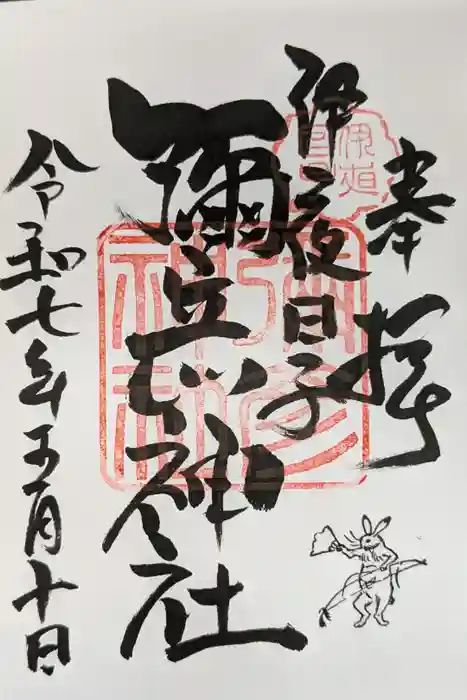 奉拝
伊夜日子
彌彦神社
令和七年五月十日
彌彦
神社